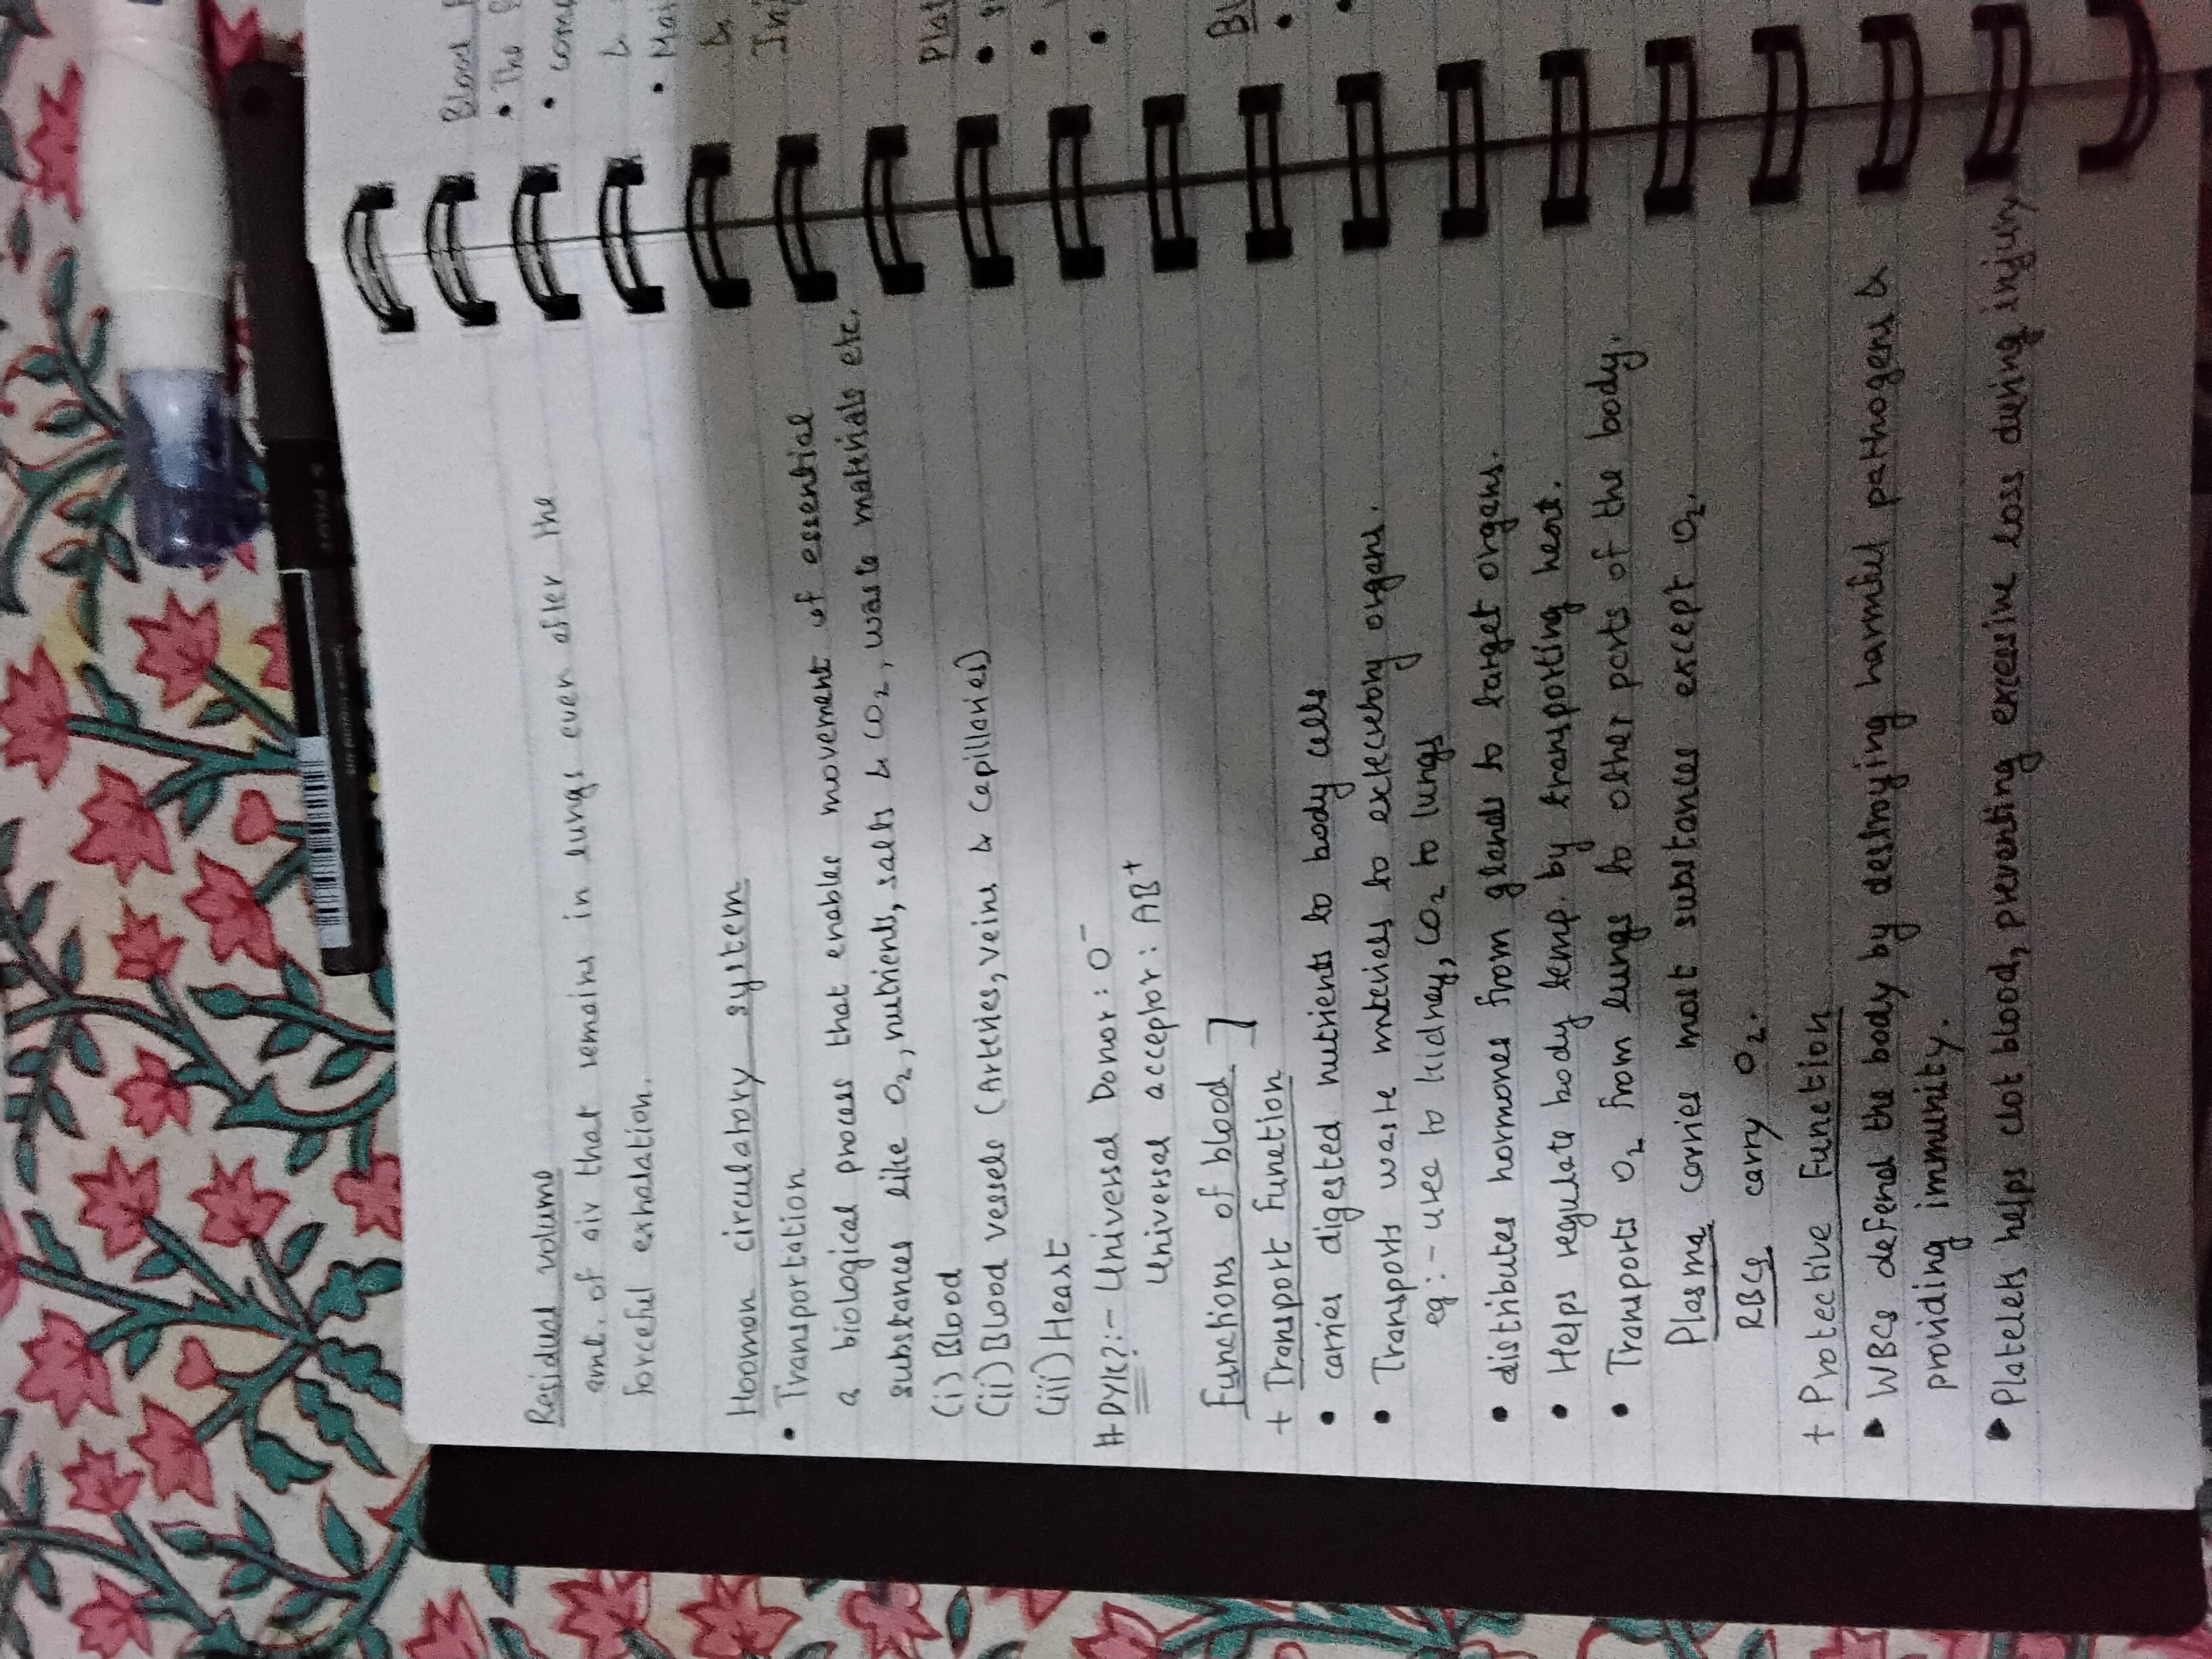 Residual volume
amt. of air that remains in lungs even after the
forceful exhalation.
Hooman circulatory system
• Transportation
a biological process that enables movement of essential
substances like O2, nutrients, salts & CO2, waste materials etc.
(i) Blood
(ii) Blood vessels (Arteries, veins & Capillaries)
(iii) Heart
# DYK?:- Universal Donor: O-
Universal acceptor: AB+
Functions of blood ]
+ Transport Function
• carries digested nutrients to body cells
• Transports waste materials to execretory organs.
eg:- urea to kidney, CO2 to lungs
• distributes hormones from glands to target organs.
• Helps regulate body temp. by transporting heat.
• Transports O2 from lungs to other parts of the body.
Plasma carries most substances except O2.
RBCs carry O2.
+ Protective Function
▸ WBCs defend the body by destroying harmful pathogens &
providing immunity.
▸ Platelets helps clot blood, preventing excessive loss during injury
Blood
• The
•
&
•
&
Plat
•
•
•
Bl
•
•